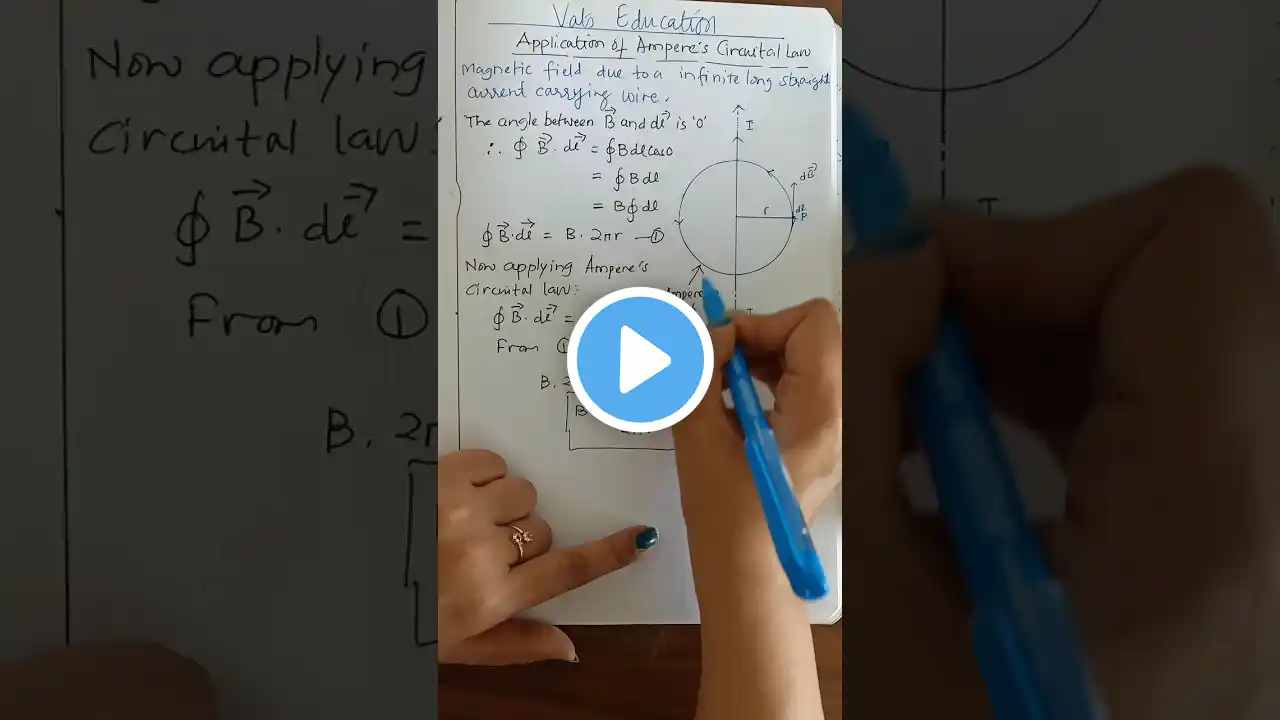 Vats Education
Application of Ampere's Circuital Law
Magnetic field due to a infinite long straight
current carrying wire.
The angle between B⃗ and dl⃗ is '0'
∴ ∮ B⃗ · dl⃗ = ∮ B dl cos 0
= ∮ B dl
= B ∮ dl
∮ B⃗ · dl⃗ = B · 2πr — ①
Now applying Ampere's
Circuital law:
∮ B⃗ · dl⃗ =
From ①
B · 2
B
I
dB⃗
dl
r
P
I
Now applying
Circuital law:
∮ B⃗ · dl⃗ =
From ①
B · 2π
I